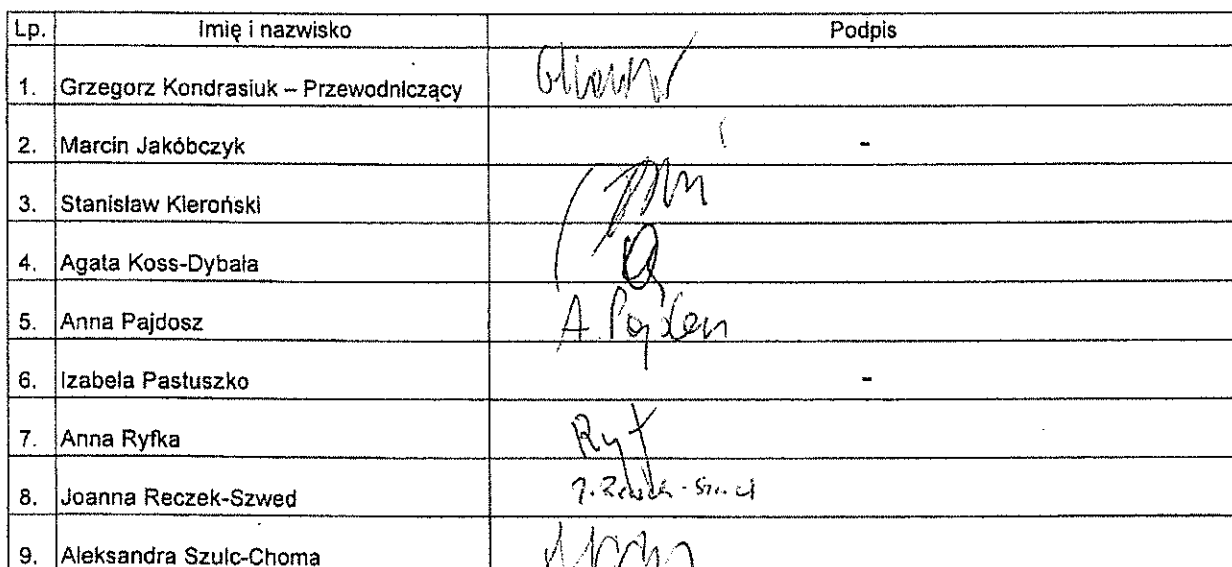 Lp. Imię i nazwisko Podpis
1. Grzegorz Kondrasiuk – Przewodniczący
2. Marcin Jakóbczyk -
3. Stanisław Kieroński
4. Agata Koss-Dybała
5. Anna Pajdosz A. Pajdosz
6. Izabela Pastuszko -
7. Anna Ryfka Ryf
8. Joanna Reczek-Szwed
9. Aleksandra Szulc-Choma